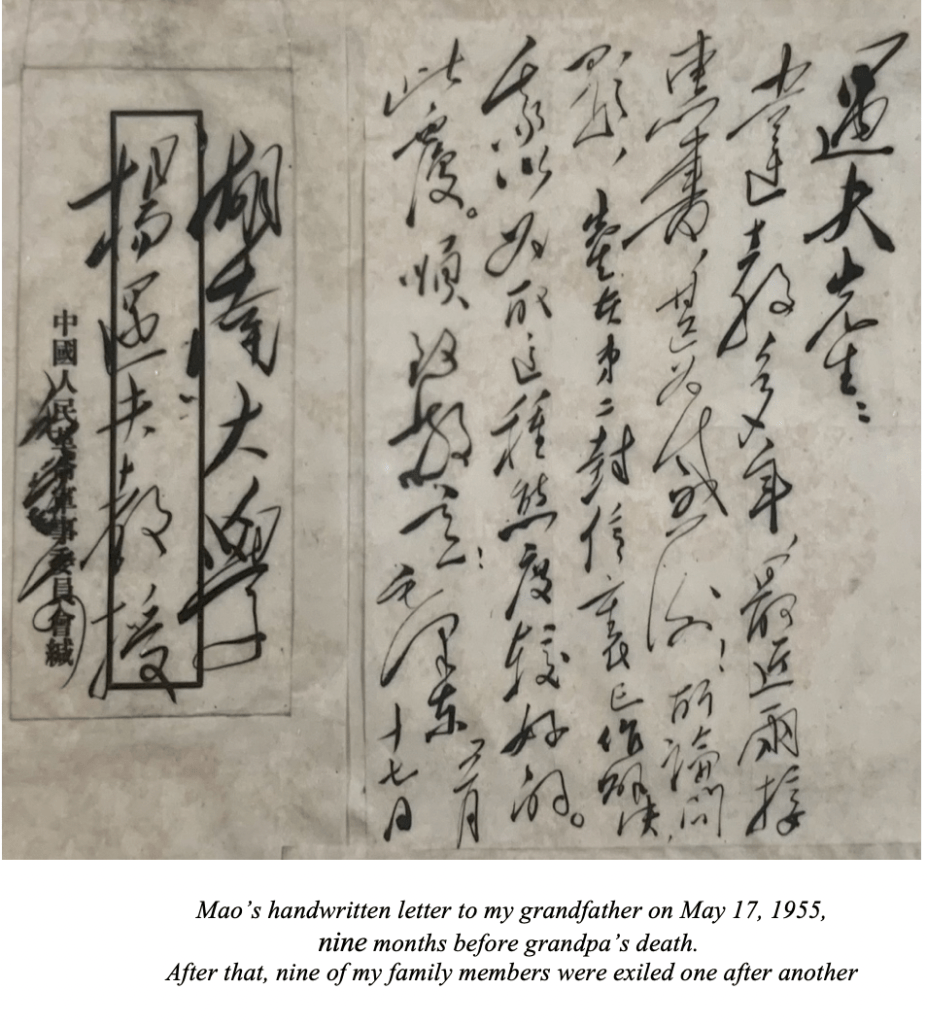 遇夫先生：
違教多年，最近兩接
惠書，甚為感謝！所論問
題，在第二封信裏已作解決，
我以為取這種態度較好的。
此覆。順致敬意！
毛澤東
月
十七日
湖南大學
楊遇夫教授
中國人民革命軍事委員會緘
Mao's handwritten letter to my grandfather on May 17, 1955,
nine months before grandpa's death.
After that, nine of my family members were exiled one after another